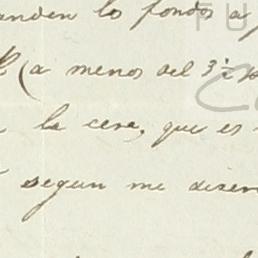 anden los fondos a
(a menos del 3 ½
la cera, que es
segun me dicen